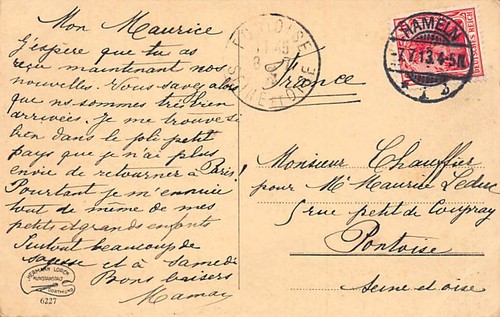 Mon Maurice
J'espère que tu as
reçu maintenant nos
nouvelles. Vous savez alors
que ns. sommes très bien
arrivées. Je me trouve si
bien dans le joli petit
pays que je n'ai plus
envie de retourner à Paris!
Pourtant je m'ennuie
tout de même de mes
petits et grands enfants
Surtout beaucoup de
et à Samedi
Bons baisers
Maman
HERMANN LORCH
KUNSTANSTALT
DORTMUND
6227
PONTOISE
SEINE-ET-OISE
HAMELN
7.7.13.4-5N.
DEUTSCHES REICH
France
Monsieur Chauffier
pour Mr Maurice Leduc
5 rue petit de Coupray
Pontoise
Seine et oise